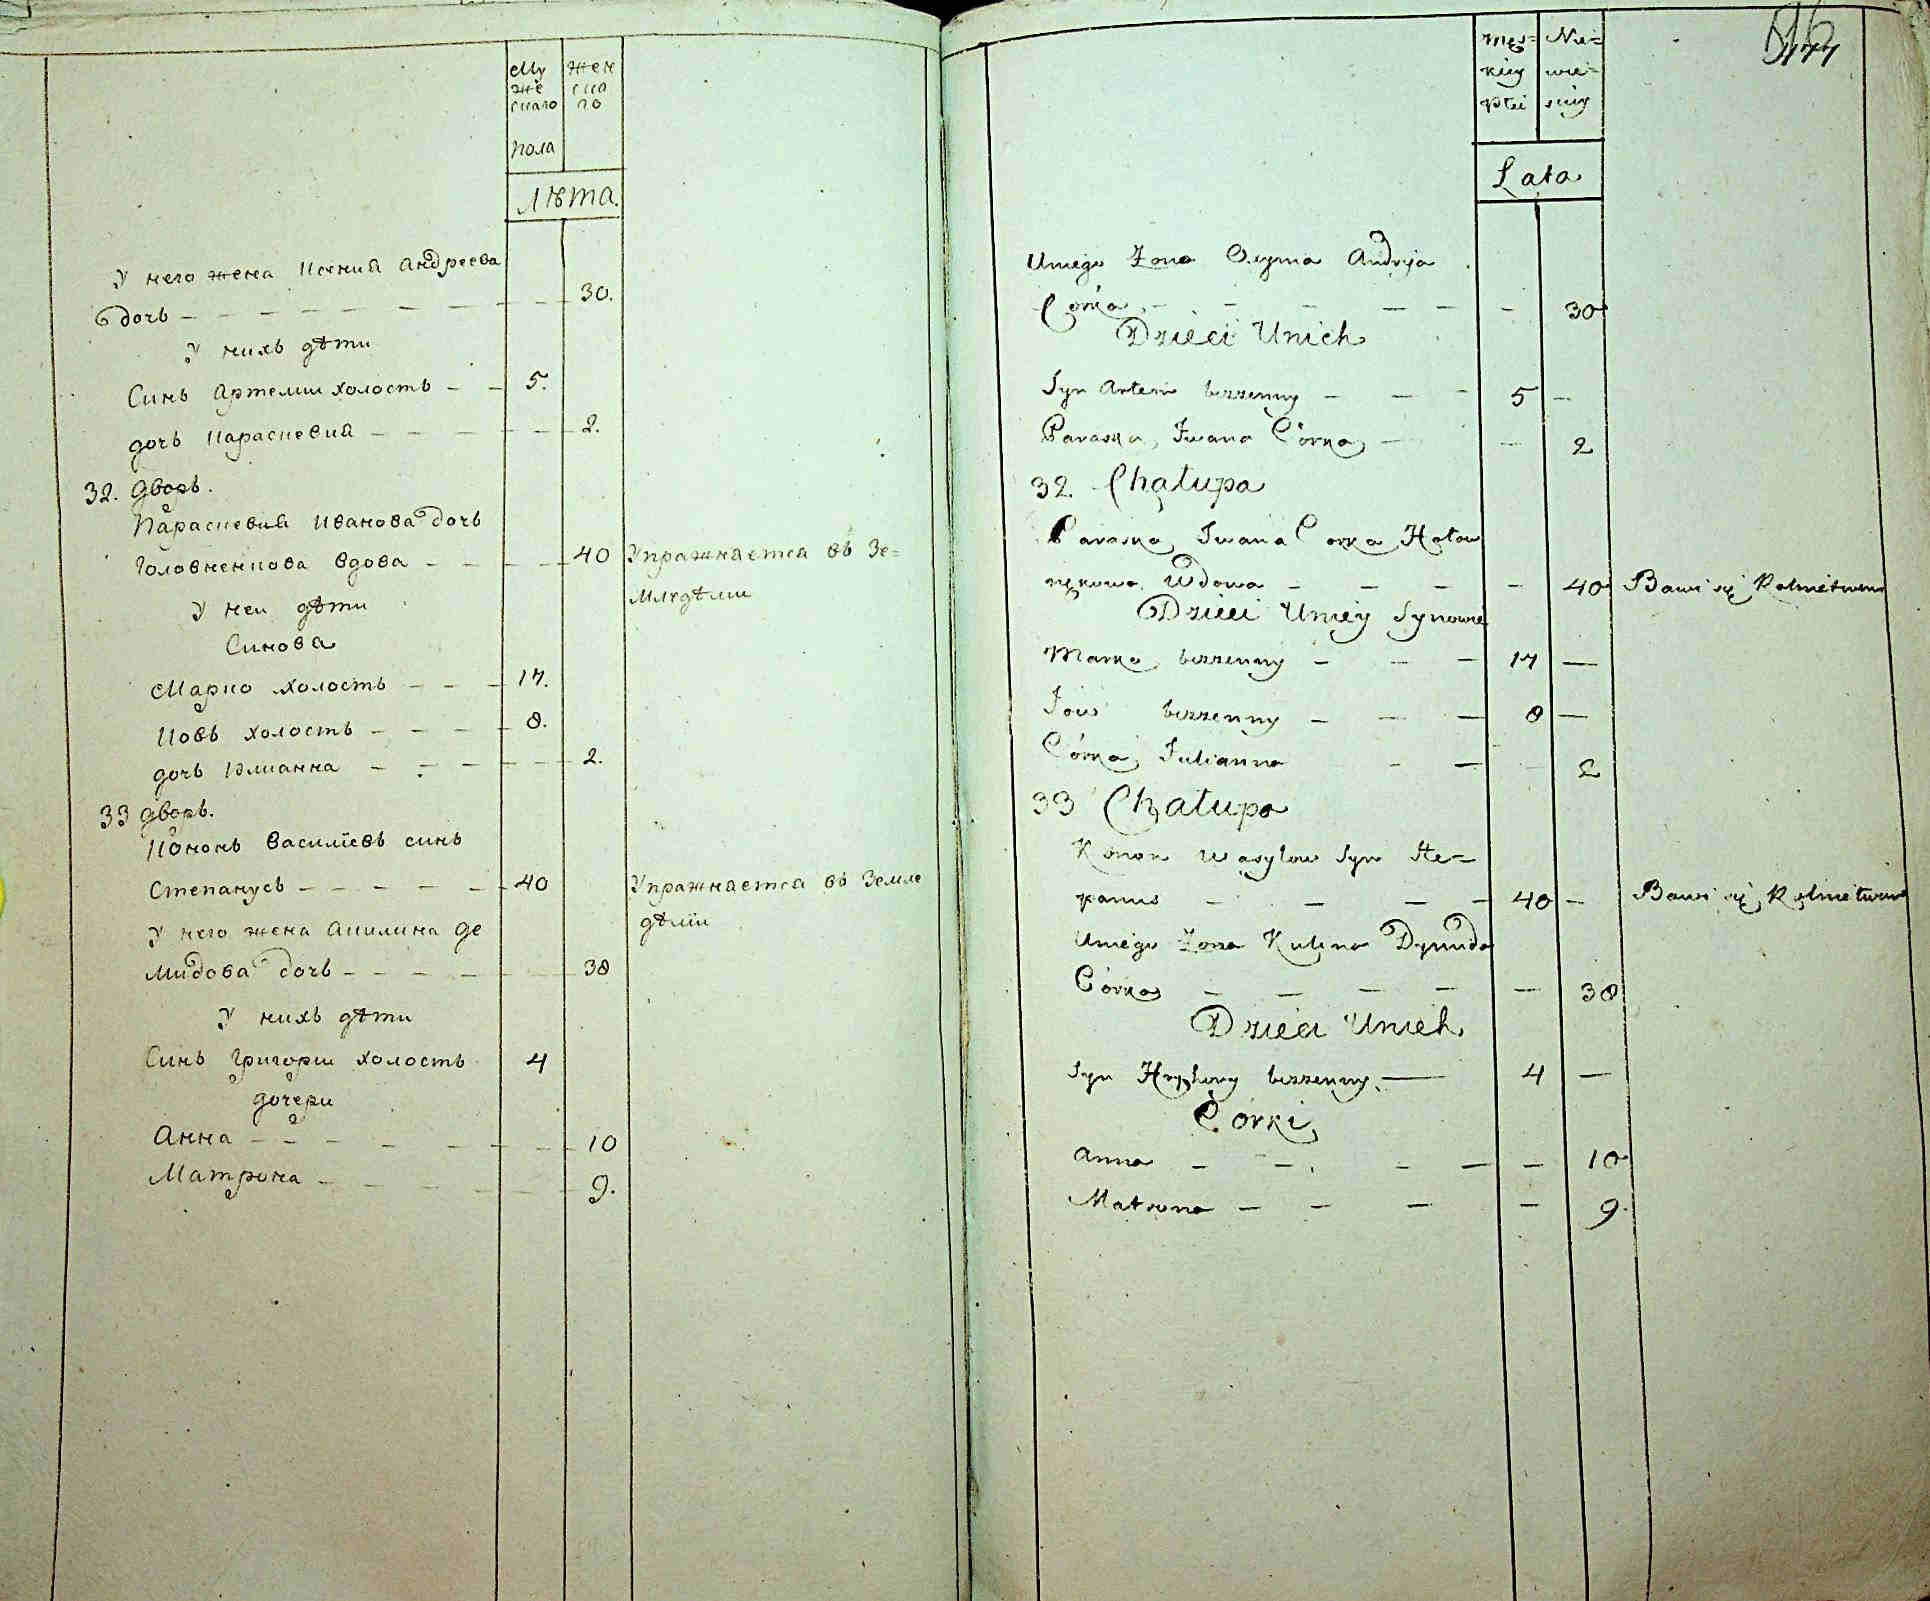 Му
же
скаго
пола
Жен
ска
го
Лѣта.
У него жена Ксения Андреева
дочь — — — — — — — — 30.
У нихъ дѣти
Синь Артемии холость — — 5.
дочь Параскевия — — — — — 2.
32. дворъ.
Параскевия Иванова дочь
Головненкова вдова — — — — 40 Упражняется въ Зе=
У неи дѣти млѣдѣлии
Синова
Марко холость — — — 17.
Иовъ холость — — — — 8.
дочь Юлианна — — — — — 2.
33 дворъ.
Кононъ Василіевъ синь
Степанусь — — — — — 40 Упражняется въ Земле
У него жена Акилина Де дѣліи
мидова дочь — — — — — 38
У нихъ дѣти
Синь Григории холость 4
дочери
Анна — — — — — — — 10
Матрона — — — — — — 9.
Męs=
kiey
płei
Nie=
wie=
sciey
177
Lata
Uniego Zona Oxyma Andryja
Corka — — — — — — 30
Dzieci Unich
Syn Artem bezzenny — — — 5 —
Paraska Iwana Córka — — 2
32. Chałupa
Paraska Iwana Corka Hołow
nękowa Wdowa — — — — 40 Bawi się Rolnictwem
Dzieci Uniey Synowie
Marko bezzenny — — — 17 —
Iow bezzenny — — — 8 —
Córka Julianna — — — 2
33 Chałupa
Konon Wasylow Syn Ste=
panus — — — — 40 — Bawi się Rolnictwem
Uniego Zona Kulina Dymida
Córka — — — — — 38
Dzieci Unich
Syn Hryhory bezzenny — 4 —
Córki
Anna — — — — — 10
Matrona — — — — 9.